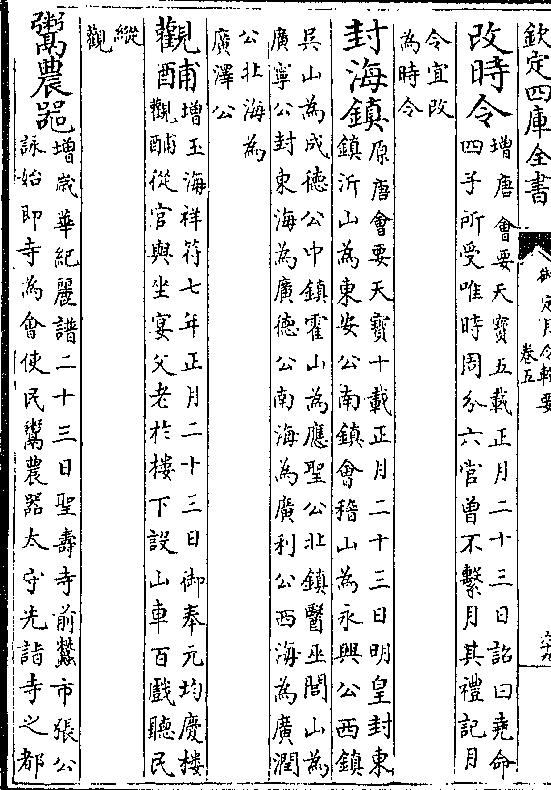 欽定四庫全書
御定月令輯要
卷五
改時令
增唐會要天寳五載正月二十三日詔曰堯命
四子所受唯時周分六官曾不繫月其禮記月
令宜改
為時令
封海鎮
原唐會要天寳十載正月二十三日明皇封東
鎮沂山為東安公南鎮會稽山為永興公西鎮
吳山為成德公中鎮霍山為應聖公北鎮醫巫閭山為
廣寧公封東海為廣德公南海為廣利公西海為廣潤
公北海為
廣澤公
觀酺
增玉海祥符七年正月二十三日御奉元均慶樓
觀酺從官與坐宴父老於樓下設山車百戲聽民
縱
觀
鬻農器
增歲華紀麗譜二十三日聖壽寺前蠶市張公
詠始即寺為會使民鬻農器太守先詣寺之都